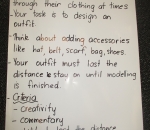 through their clothing at times.
- Your task is to design an
outfit.
- Think about adding accessories
like hat, belt, scarf, bag, shoes.
- Your outfit must last the
distance & stay on until modeling
is finished.
- Criteria
- Creativity
- commentary
distance